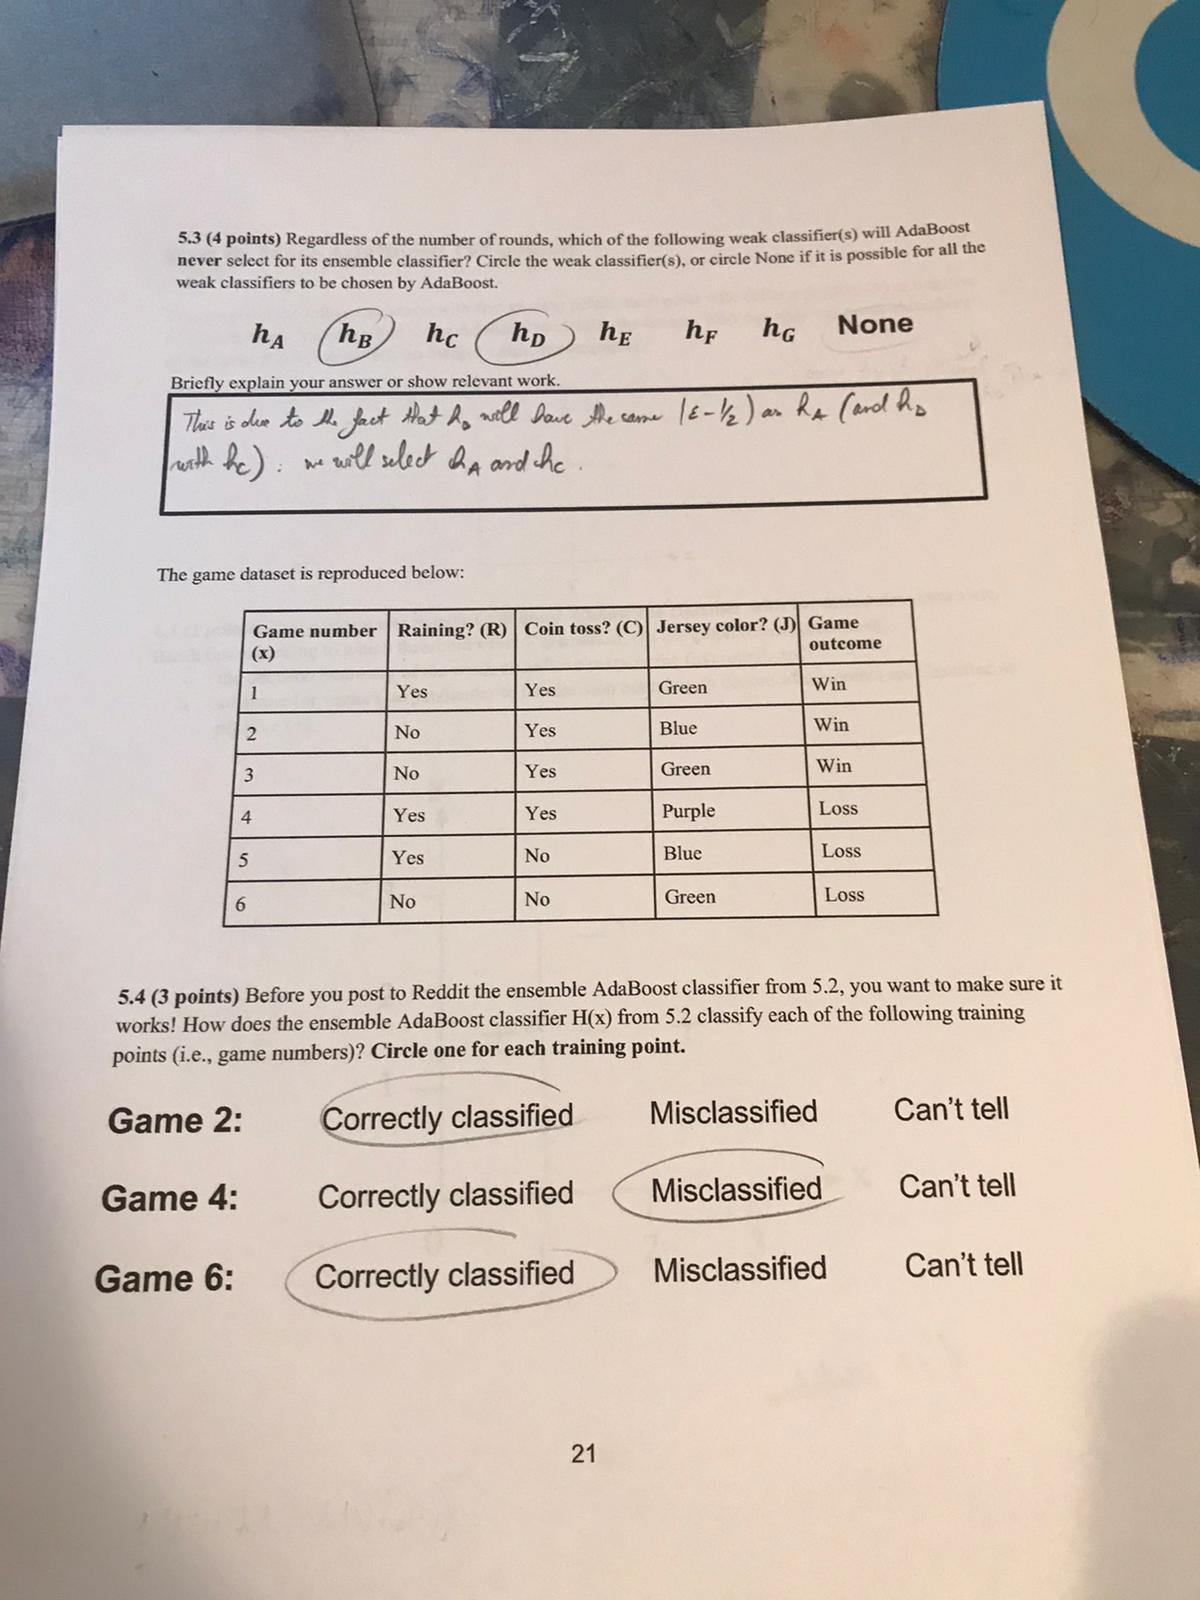 5.3 (4 points) Regardless of the number of rounds, which of the following weak classifier(s) will AdaBoost
never select for its ensemble classifier? Circle the weak classifier(s), or circle None if it is possible for all the
weak classifiers to be chosen by AdaBoost.
hA hB hC hD hE hF hG None
Briefly explain your answer or show relevant work.
This is due to the fact that hB will have the same |ε-1/2| as hA (and hD
with hC): we will select hA and hC.
The game dataset is reproduced below:
Game number (x) Raining? (R) Coin toss? (C) Jersey color? (J) Game outcome
1 Yes Yes Green Win
2 No Yes Blue Win
3 No Yes Green Win
4 Yes Yes Purple Loss
5 Yes No Blue Loss
6 No No Green Loss
5.4 (3 points) Before you post to Reddit the ensemble AdaBoost classifier from 5.2, you want to make sure it
works! How does the ensemble AdaBoost classifier H(x) from 5.2 classify each of the following training
points (i.e., game numbers)? Circle one for each training point.
Game 2: Correctly classified Misclassified Can't tell
Game 4: Correctly classified Misclassified Can't tell
Game 6: Correctly classified Misclassified Can't tell
21